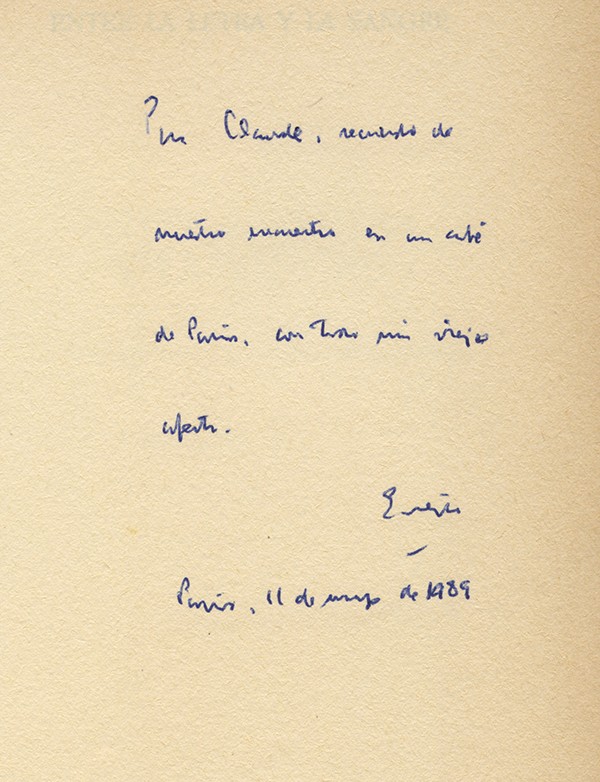 ENTRE LA LETRA Y LA SANGRE
Para Claude, recuerdo de
nuestro encuentro en un café
de París, con todo mi viejo
afecto.
Ernesto
París, 11 de mayo de 1989